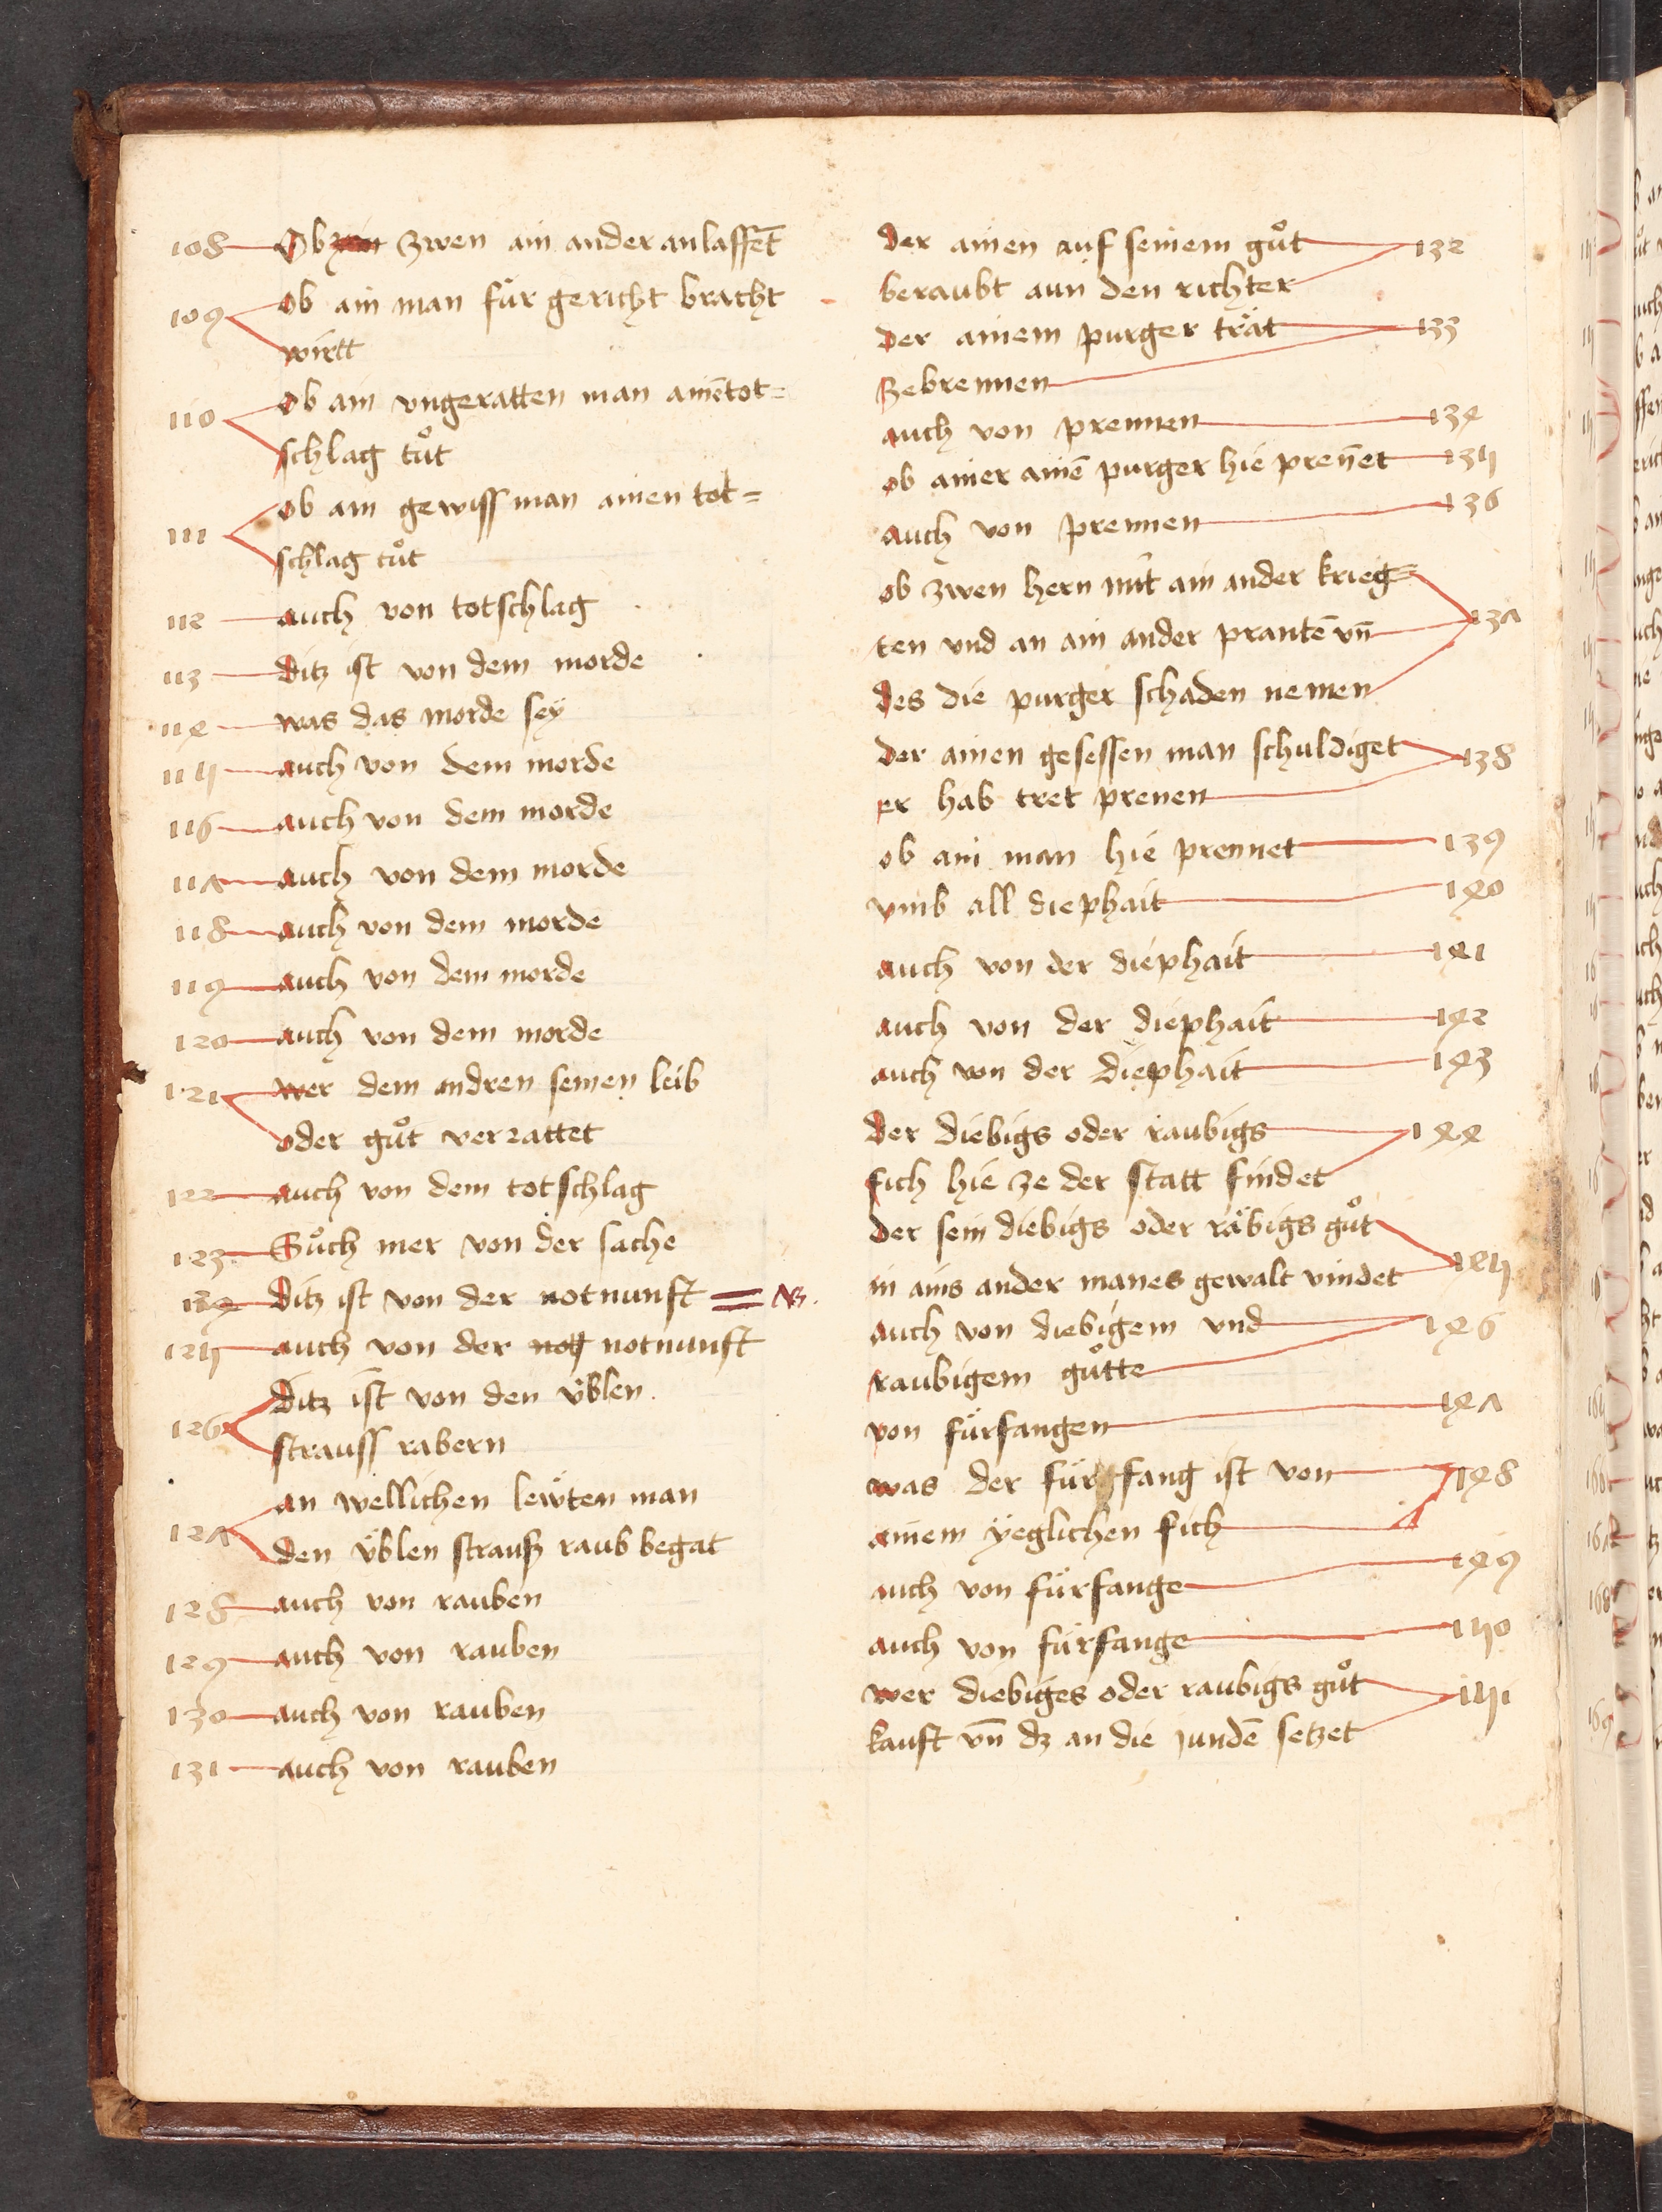 108 Ob zwen ain ander anlassēt
109 ob ain man für gericht bracht
wirtt
110 ob ain vngeratten man ainē tot=
schlag tuͦt
111 ob ain gewiss man ainen tot=
schlag tuͦt
112 auch von totschlag
113 ditz ist von dem morde
114 was das morde seÿ
115 auch von dem morde
116 auch von dem morde
117 auch von dem morde
118 auch von dem morde
119 auch von dem morde
120 auch von dem morde
121 wer dem andren seinen leib
oder guͦt verrattet
122 auch von dem totschlag
123 Suͦch mer von der sache
124 ditz ist von der notnunft = NB.
125 auch von der nott notnunft
126 ditz ist von den üblen
strauss rabern
127 an wellichen lewten man
den üblen strausz raub begat
128 auch von rauben
129 auch von rauben
130 auch von rauben
131 auch von rauben
der ainen auf seinem guͦt 132
beraubt aun den richter
der ainem purger trät 133
ze brennen
auch von prennen 134
ob ainer ainē purger hie preñet 135
auch von prennen 136
ob zwen hern mit ain ander krieg=
ten vnd an ain ander prantē vñ 137
des die purger schaden nemen
der ainen gesessen man schuldiget 138
er hab tret prenen
ob ain man hie prennet 139
vmb all diephait 140
auch von der diephait 141
auch von der diephait 142
auch von der diephait 143
der diebigs oder raubigs 144
fich hie ze der statt findet
der sein diebigs oder räbigs guͦt
in ains ander manes gewalt vindet 145
auch von diebigem vnd 146
raubigem guͦtte
von fürfangen 147
was der fürfang ist von 148
ainem yeglichen fich
auch von fürfange 149
auch von fürfange 150
wer diebiges oder raubigs guͦt 151
kauft vñ dz an die judē setzet